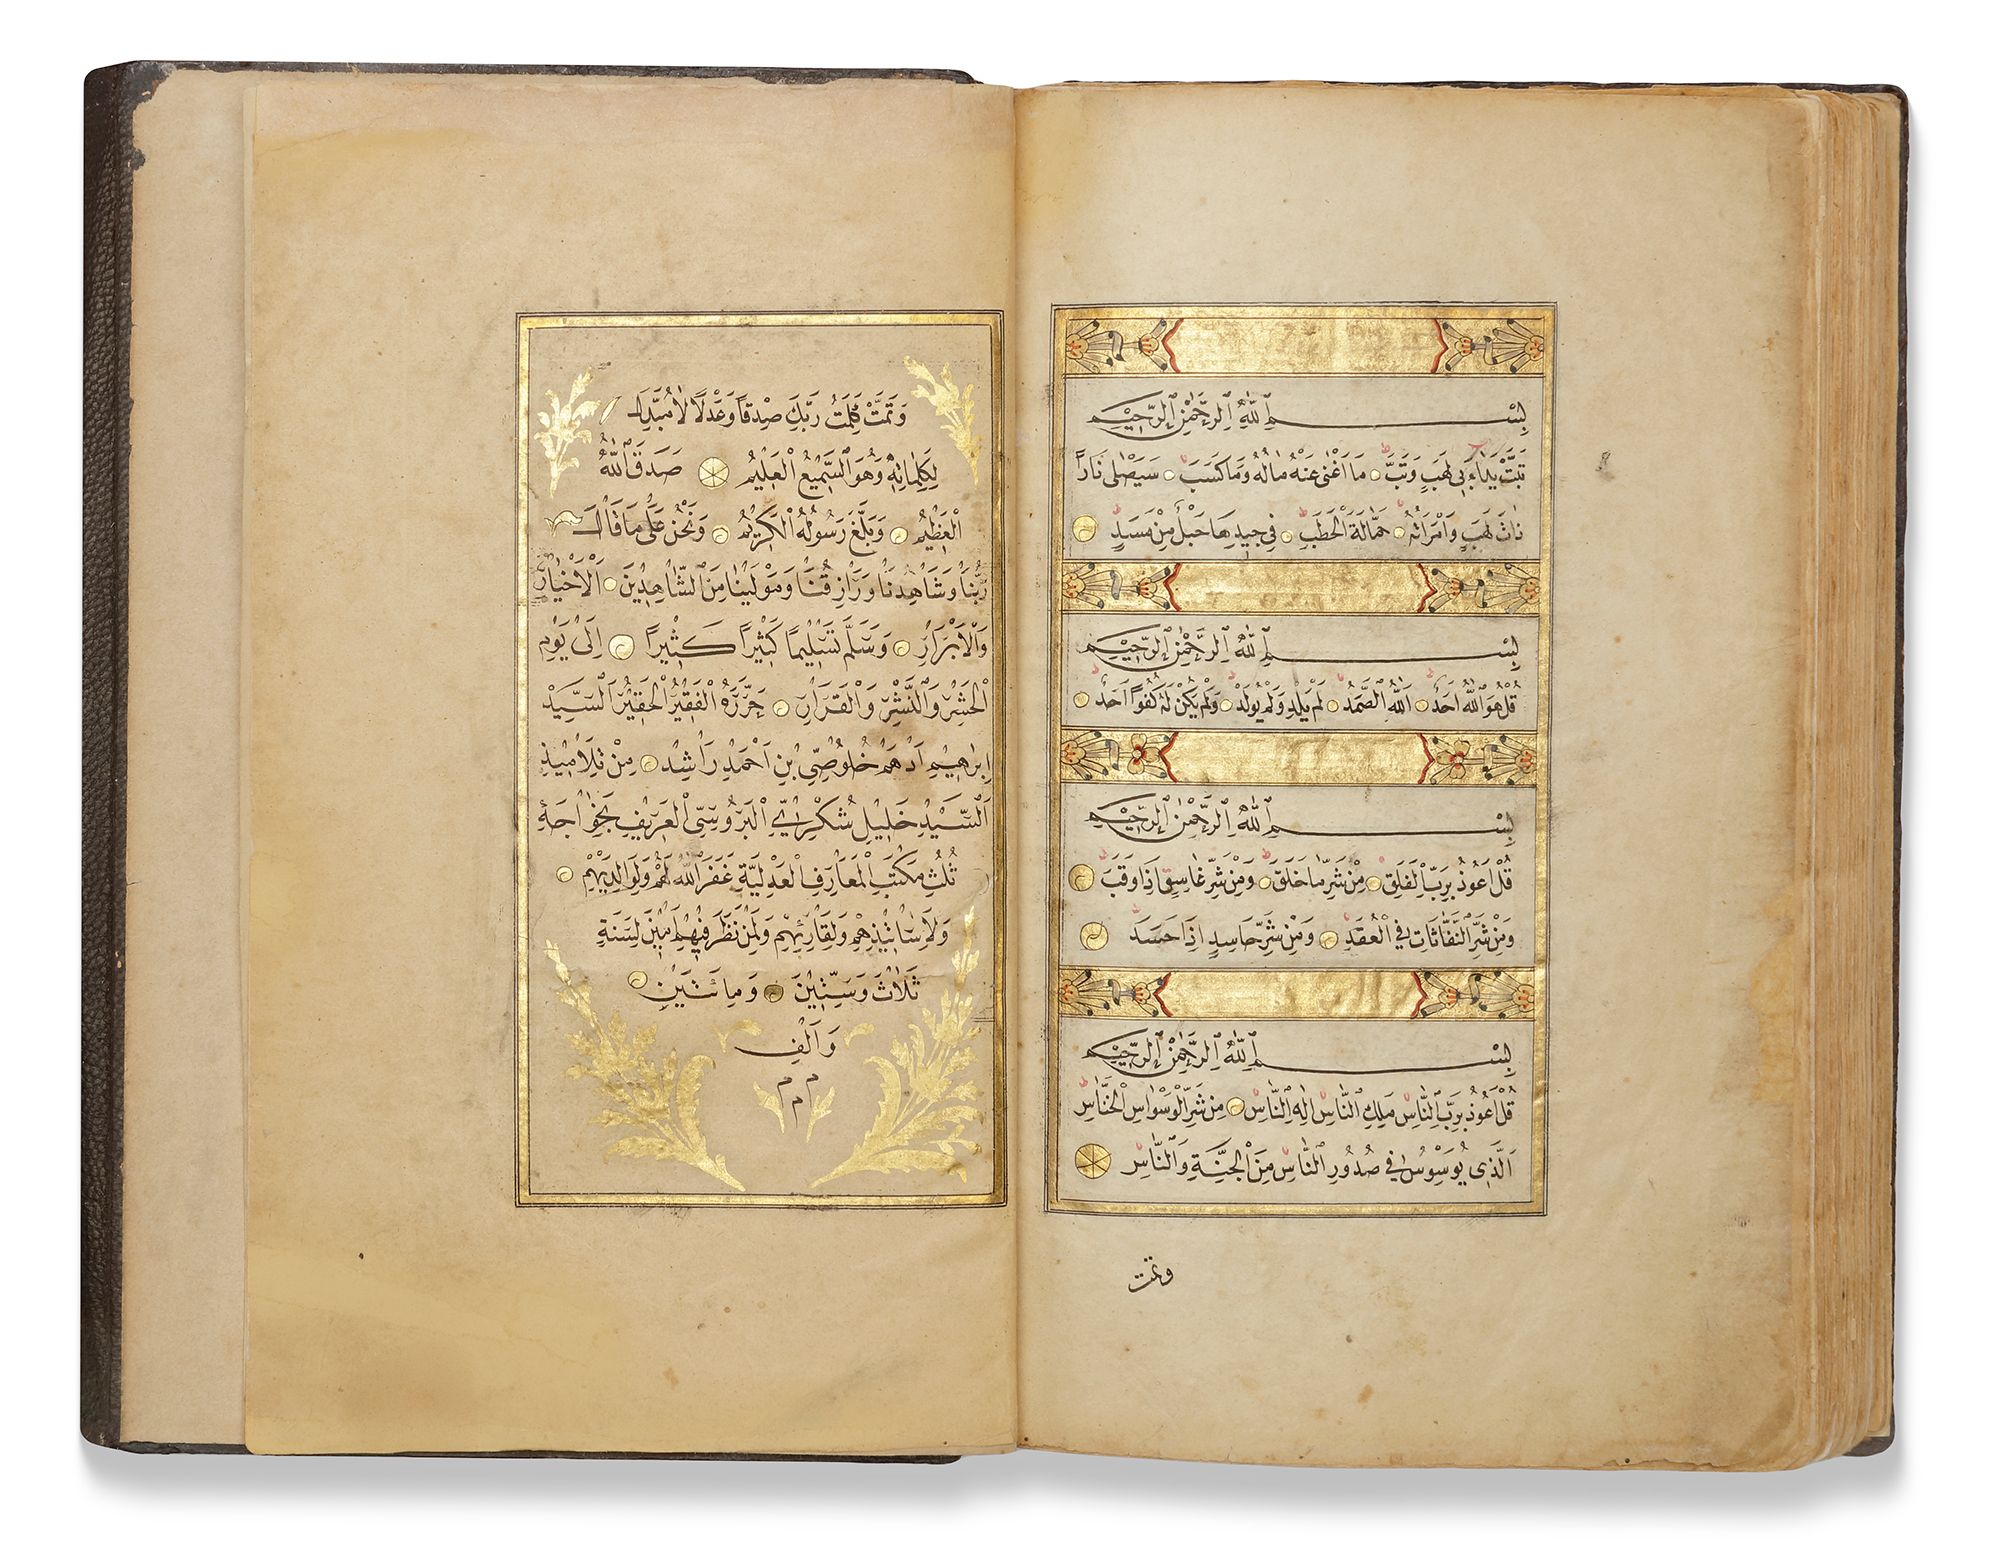 بِسْمِ اللّٰهِ الرَّحْمٰنِ الرَّحِيْمِ
تَبَّتْ يَدَٓا اَبِي لَهَبٍ وَتَبَّ مَٓا اَغْنٰى عَنْهُ مَالُهُ وَمَا كَسَبَ سَيَصْلٰى نَارًا
ذَاتَ لَهَبٍ وَامْرَاَتُهُ حَمَّالَةَ الْحَطَبِ فِي جِيدِهَا حَبْلٌ مِنْ مَسَدٍ
بِسْمِ اللّٰهِ الرَّحْمٰنِ الرَّحِيْمِ
قُلْ هُوَ اللّٰهُ اَحَدٌ اَللّٰهُ الصَّمَدُ لَمْ يَلِدْ وَلَمْ يُولَدْ وَلَمْ يَكُنْ لَهُ كُفُوًا اَحَدٌ
بِسْمِ اللّٰهِ الرَّحْمٰنِ الرَّحِيْمِ
قُلْ اَعُوذُ بِرَبِّ الْفَلَقِ مِنْ شَرِّ مَا خَلَقَ وَمِنْ شَرِّ غَاسِقٍ اِذَا وَقَبَ
وَمِنْ شَرِّ النَّفَّاثَاتِ فِي الْعُقَدِ وَمِنْ شَرِّ حَاسِدٍ اِذَا حَسَدَ
بِسْمِ اللّٰهِ الرَّحْمٰنِ الرَّحِيْمِ
قُلْ اَعُوذُ بِرَبِّ النَّاسِ مَلِكِ النَّاسِ اِلٰهِ النَّاسِ مِنْ شَرِّ الْوَسْوَاسِ الْخَنَّاسِ
اَلَّذِي يُوَسْوِسُ فِي صُدُورِ النَّاسِ مِنَ الْجِنَّةِ وَالنَّاسِ
وتمت
وَتَمَّتْ كَلِمَتُ رَبِّكَ صِدْقًا وَعَدْلًا لَا مُبَدِّلَ
لِكَلِمَاتِهِ وَهُوَ السَّمِيْعُ الْعَلِيْمُ صَدَقَ اللّٰهُ
الْعَظِيْمُ وَبَلَّغَ رَسُولُهُ الْكَرِيْمُ وَنَحْنُ عَلٰى مَا قَالَ
رَبُّنَا وَشَاهِدُنَا وَرَازِقُنَا وَمَوْلَيْنَا مِنَ الشَّاهِدِيْنَ اَلْاَخْيَارِ
وَالْاَبْرَارِ وَسَلَّمَ تَسْلِيْمًا كَثِيْرًا كَثِيْرًا اِلٰى يَوْمِ
الْحَشْرِ وَالنَّشْرِ وَالْقَرَارِ حَرَّرَهُ الْفَقِيْرُ الْحَقِيْرُ السَّيِّدْ
اِبْرٰهِيْمِ اَدْهَمْ خُلُوصِي بْنِ اَحْمَدْ رَاشِدْ مِنْ تَلَامِيْذِ
اَلسَّيِّدْ خَلِيْلِ شُكْرِي الْبُرُوسَى الْعَرِيْفِ بِخَوَاجَهْ
ثُلُثِ مَكْتَبِ الْمَعَارِفِ الْعَدْلِيَّةِ غَفَرَ اللّٰهُ لَهُمْ وَلِوَالِدَيْهِمْ
وَلِاَسَاتِيْذِهِمْ وَلِقَارِئِهِمْ وَلِمَنْ نَظَرَ فِيْهِمْ اَمِيْنَ لِسَنَةِ
ثَلَاثَ وَسِتِّيْنَ وَمِائَتَيْنِ
وَاَلْفِ
م م م م